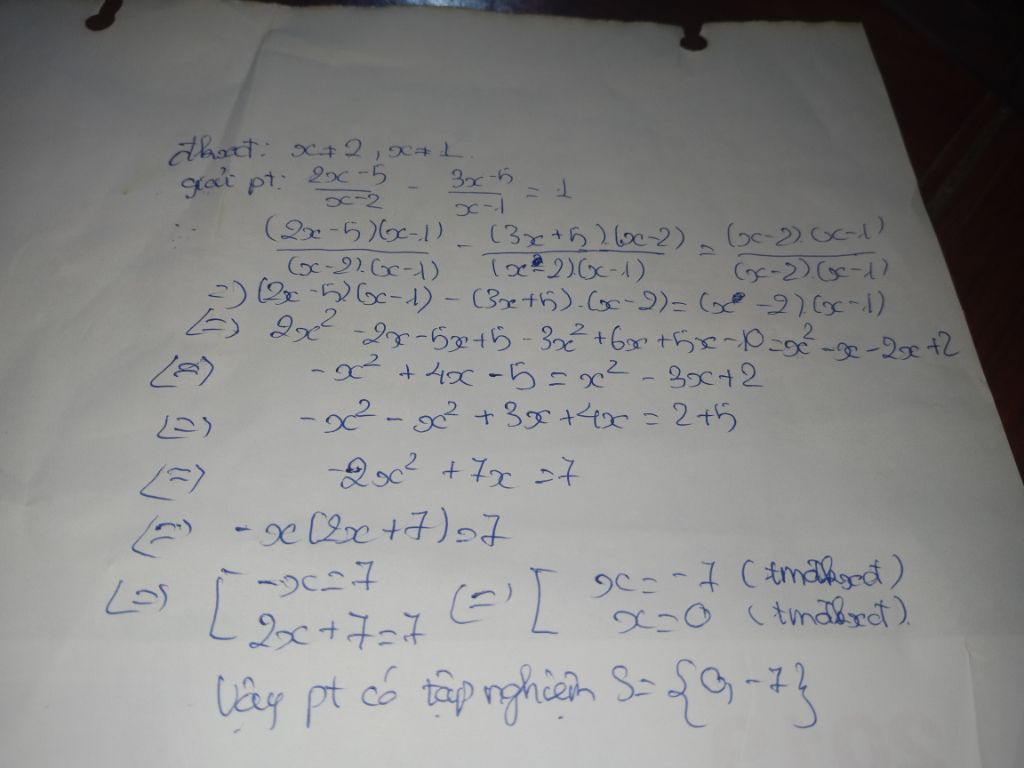 đkxđ: x ≠ 2, x ≠ 1.
giải pt: (2x-5)/(x-2) - (3x-5)/(x-1) = 1
((2x-5)(x-1))/((x-2).(x-1)) - ((3x+5).(x-2))/((x-2)(x-1)) = ((x-2).(x-1))/((x-2)(x-1))
=> (2x-5)(x-1) - (3x+5).(x-2) = (x-2).(x-1)
<=> 2x² - 2x - 5x + 5 - 3x² + 6x + 5x - 10 = x² - x - 2x + 2
<=> -x² + 4x - 5 = x² - 3x + 2
<=> -x² - x² + 3x + 4x = 2 + 5
<=> -2x² + 7x = 7
<=> -x(2x + 7) = 7
<=> [ -x = 7 <=> [ x = -7 (tmđkxđ)
2x + 7 = 7 x = 0 (tmđkxđ).
Vậy pt có tập nghiệm S = {0, -7}